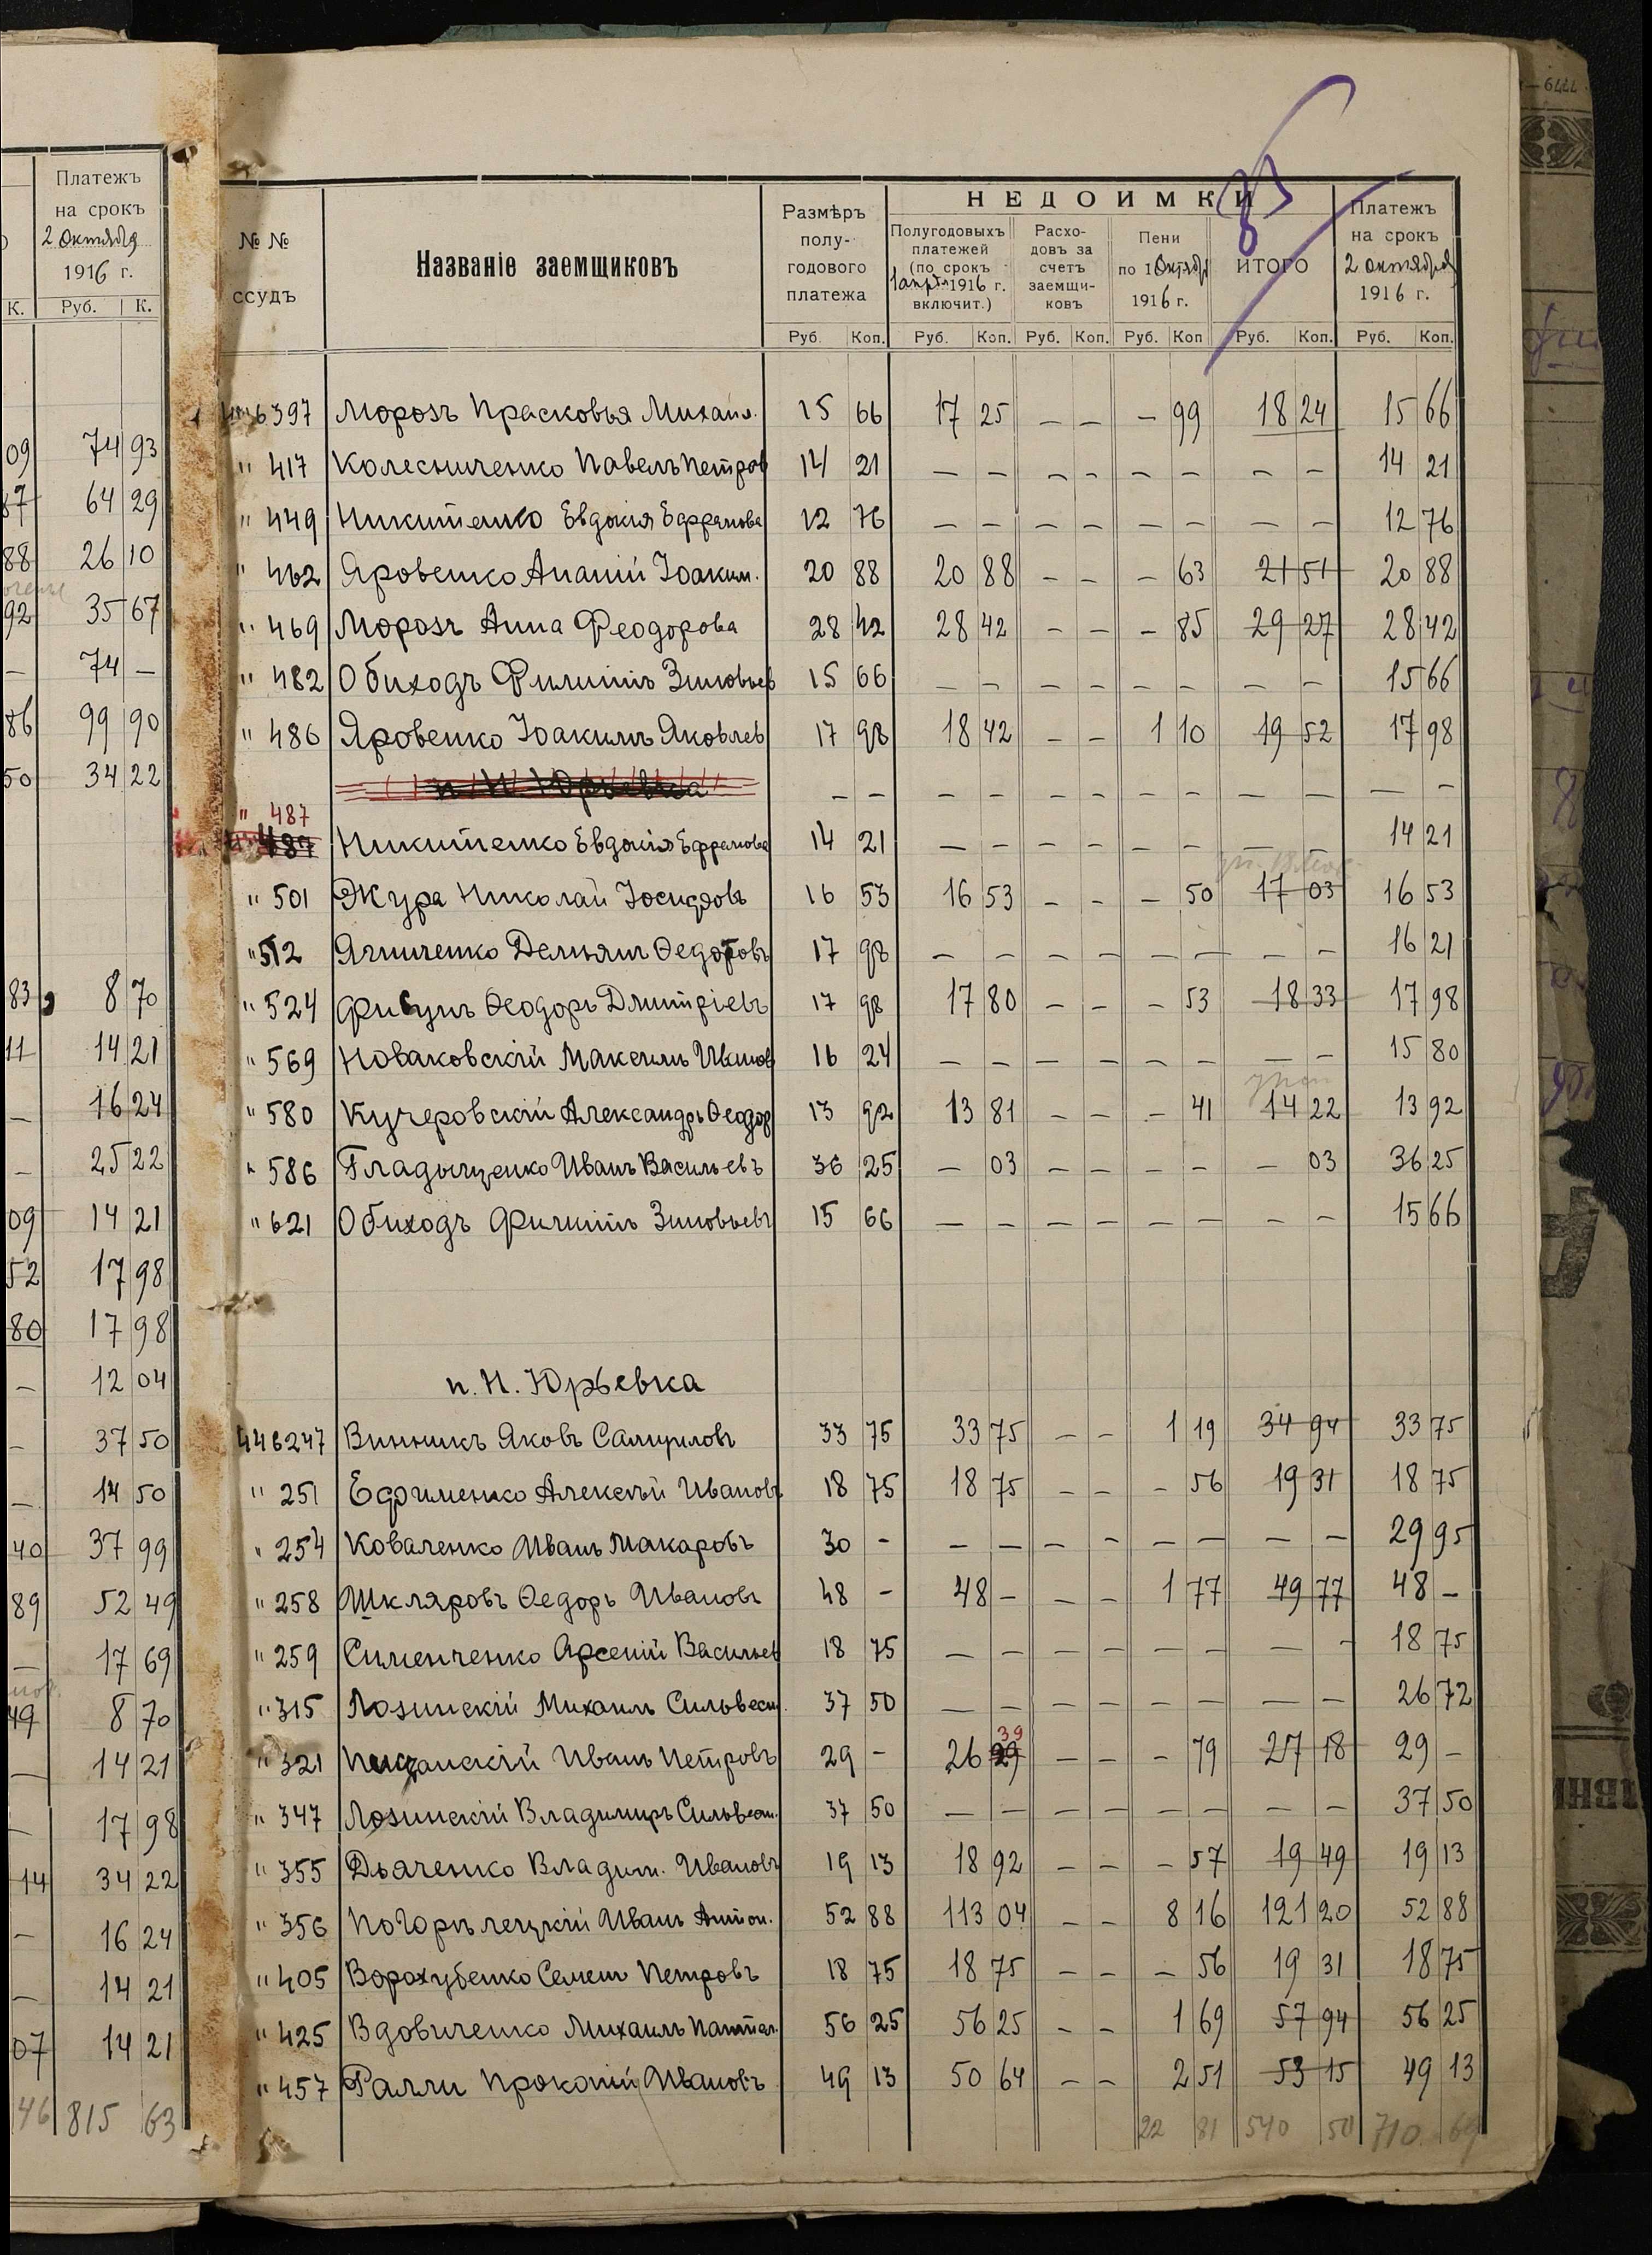 Платежъ
на срокъ
2 Октября
1916 г.
К. Руб. К.
09 74 93
87 64 29
88 26 10
92 35 67
— 74 —
86 99 90
50 34 22
83 8 70
11 14 21
— 16 24
— 25 22
09 14 21
52 17 98
80 17 98
— 12 04
— 37 50
— 14 50
40 37 99
89 52 49
— 17 69
49 8 70
— 14 21
— 17 98
14 34 22
— 16 24
— 14 21
07 14 21
46 815 63
№ № ссудъ
Названіе заемщиковъ
Размѣръ полу-годового платежа
НЕДОИМКИ
Полугодовыхъ платежей (по срокъ 1 апр. 1916 г. включит.)
Расхо-довъ за счетъ заемщи-ковъ
Пени по 1 Октябр 1916 г.
ИТОГО
Платежъ на срокъ 2 октября 1916 г.
Руб. Коп. Руб. Коп. Руб. Коп. Руб. Коп Руб. Коп. Руб. Коп.
6397 Морозъ Прасковья Михаил. 15 66 17 25 — — — 99 18 24 15 66
" 417 Колесниченко Павелъ Петров 14 21 — — — — — — — — 14 21
" 449 Никитенко Евдокія Ефрамова 12 76 — — — — — — — — 12 76
" 462 Яровенко Ананій Іоаким. 20 88 20 88 — — — 63 21 51 20 88
" 469 Морозъ Анна Феодорова 28 42 28 42 — — — 85 29 27 28 42
" 482 Обиходъ Филиппъ Зиновьев 15 66 — — — — — — — — 15 66
" 486 Яровенко Іоакимъ Яковлев 17 98 18 42 — — 1 10 19 52 17 98
п. Н. Юрьевка — — — — — — — — — — — —
" 487
487 Никитенко Евдокія Ефрамова 14 21 — — — — — — — — 14 21
" 501 Жура Николай Іосифовъ 16 53 16 53 — — — 50 17 03 16 53
" 512 Ягниченко Демьянъ Ѳедотовъ 17 98 — — — — — — — — 16 21
" 524 Фибунъ Ѳеодоръ Дмитріевъ 17 98 17 80 — — — 53 18 33 17 98
" 569 Новаковскій Максимъ 16 24 — — — — — — — — 15 80
" 580 Кучеровскій Александръ Ѳеодор 13 92 13 81 — — — 41 14 22 13 92
" 586 Гладыщенко Иванъ Васильевъ 36 25 — 03 — — — — — 03 36 25
" 621 Обиходъ Филиппъ Зиновьевъ 15 66 — — — — — — — — 15 66
п. Н. Юрьевка
446247 Винникъ Яковъ Самуиловъ 33 75 33 75 — — 1 19 34 94 33 75
" 251 Ефименко Алексѣй Ивановъ 18 75 18 75 — — — 56 19 31 18 75
" 254 Коваленко Иванъ Макаровъ 30 — — — — — — — — — 29 95
" 258 Шкляровъ Ѳедоръ Ивановъ 48 — 48 — — — 1 77 49 77 48 —
" 259 Сименченко Арсеній Васильев 18 75 — — — — — — — — 18 75
" 315 Лозинскій Михаилъ Сильвест. 37 50 — — — — — — — — 26 72
" 321 Иванъ Петровъ 29 — 26 29 39 — — — 79 27 18 29 —
" 347 Лозинскій Владимиръ Сильвест. 37 50 — — — — — — — — 37 50
" 355 Дьяченко Владим. Ивановъ 19 13 18 92 — — — 57 19 49 19 13
" 356 Погорѣлецкій Иванъ Антон. 52 88 113 04 — — 8 16 121 20 52 88
" 405 Ворохубенко Семенъ Петровъ 18 75 18 75 — — — 56 19 31 18 75
" 425 Вдовиченко Михаилъ Пантел. 56 25 56 25 — — 1 69 57 94 56 25
" 457 Ралли Прокопій Ивановъ 49 13 50 64 — — 2 51 53 15 49 13
22 81 540 50 710 69